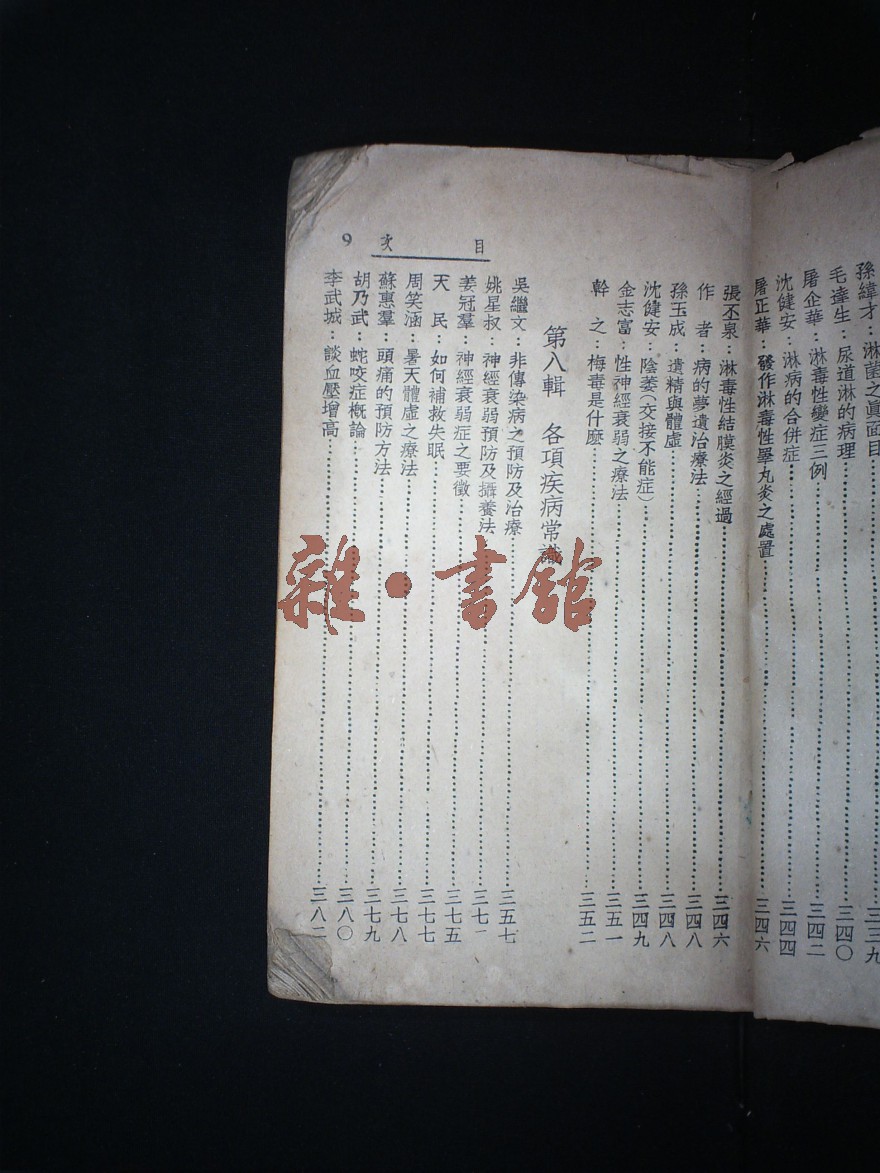 孫緯才：淋菌之眞面目……三三九
毛達生：尿道淋的病理……三四〇
屠企華：淋毒性變症三例……三四二
沈健安：淋病的合併症……三四四
屠正華：發作淋毒性睾丸炎之處置……三四六
目次 9
張丕泉：淋毒性結膜炎之經過……三四六
作者：病的夢遺治療法……三四八
孫玉成：遺精與體虛……三四八
沈健安：陰萎（交接不能症）……三四九
金志富：性神經衰弱之療法……三五一
幹之：梅毒是什麽……三五二
第八輯 各項疾病常識
吳繼文：非傳染病之預防及治療……三五七
姚星叔：神經衰弱預防及攝養法……三七一
姜冠羣：神經衰弱症之要徵……三七五
天民：如何補救失眠……三七七
周笑涵：暑天體虛之療法……三七八
蘇惠羣：頭痛的預防方法……三七九
胡乃武：蛇咬症槪論……三八〇
李武城：談血壓增高……三八二
雜·書館